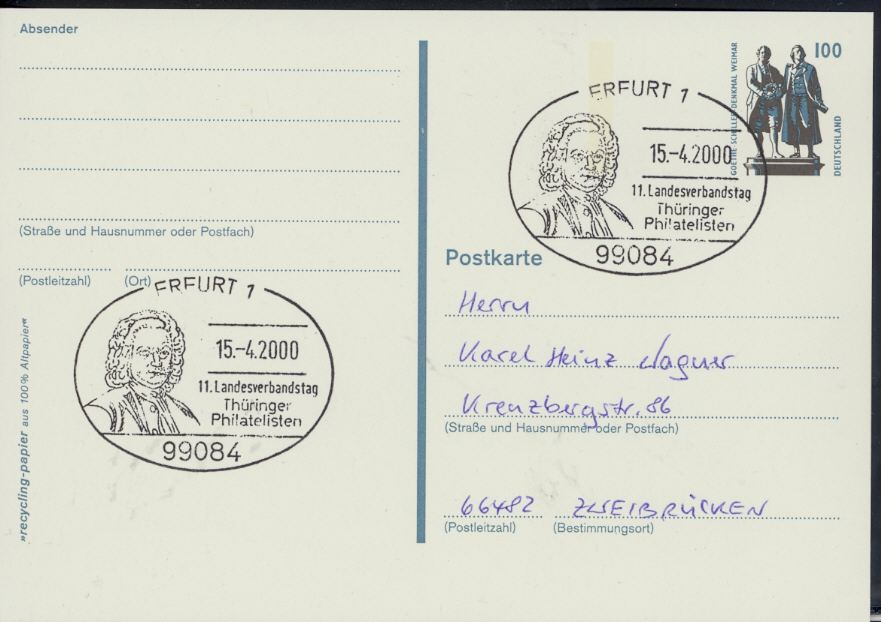 Absender
(Straße und Hausnummer oder Postfach)
(Postleitzahl) (Ort)
ERFURT 1
15.-4.2000
11. Landesverbandstag
Thüringer
Philatelisten
99084
»recycling-papier aus 100% Altpapier«
GOETHE-SCHILLER-DENKMAL WEIMAR
100
DEUTSCHLAND
ERFURT 1
15.-4.2000
11. Landesverbandstag
Thüringer
Philatelisten
99084
Postkarte
Herrn
Karel Heinz Wagner
Kreuzbergstr. 86
(Straße und Hausnummer oder Postfach)
66482 ZWEIBRÜCKEN
(Postleitzahl) (Bestimmungsort)